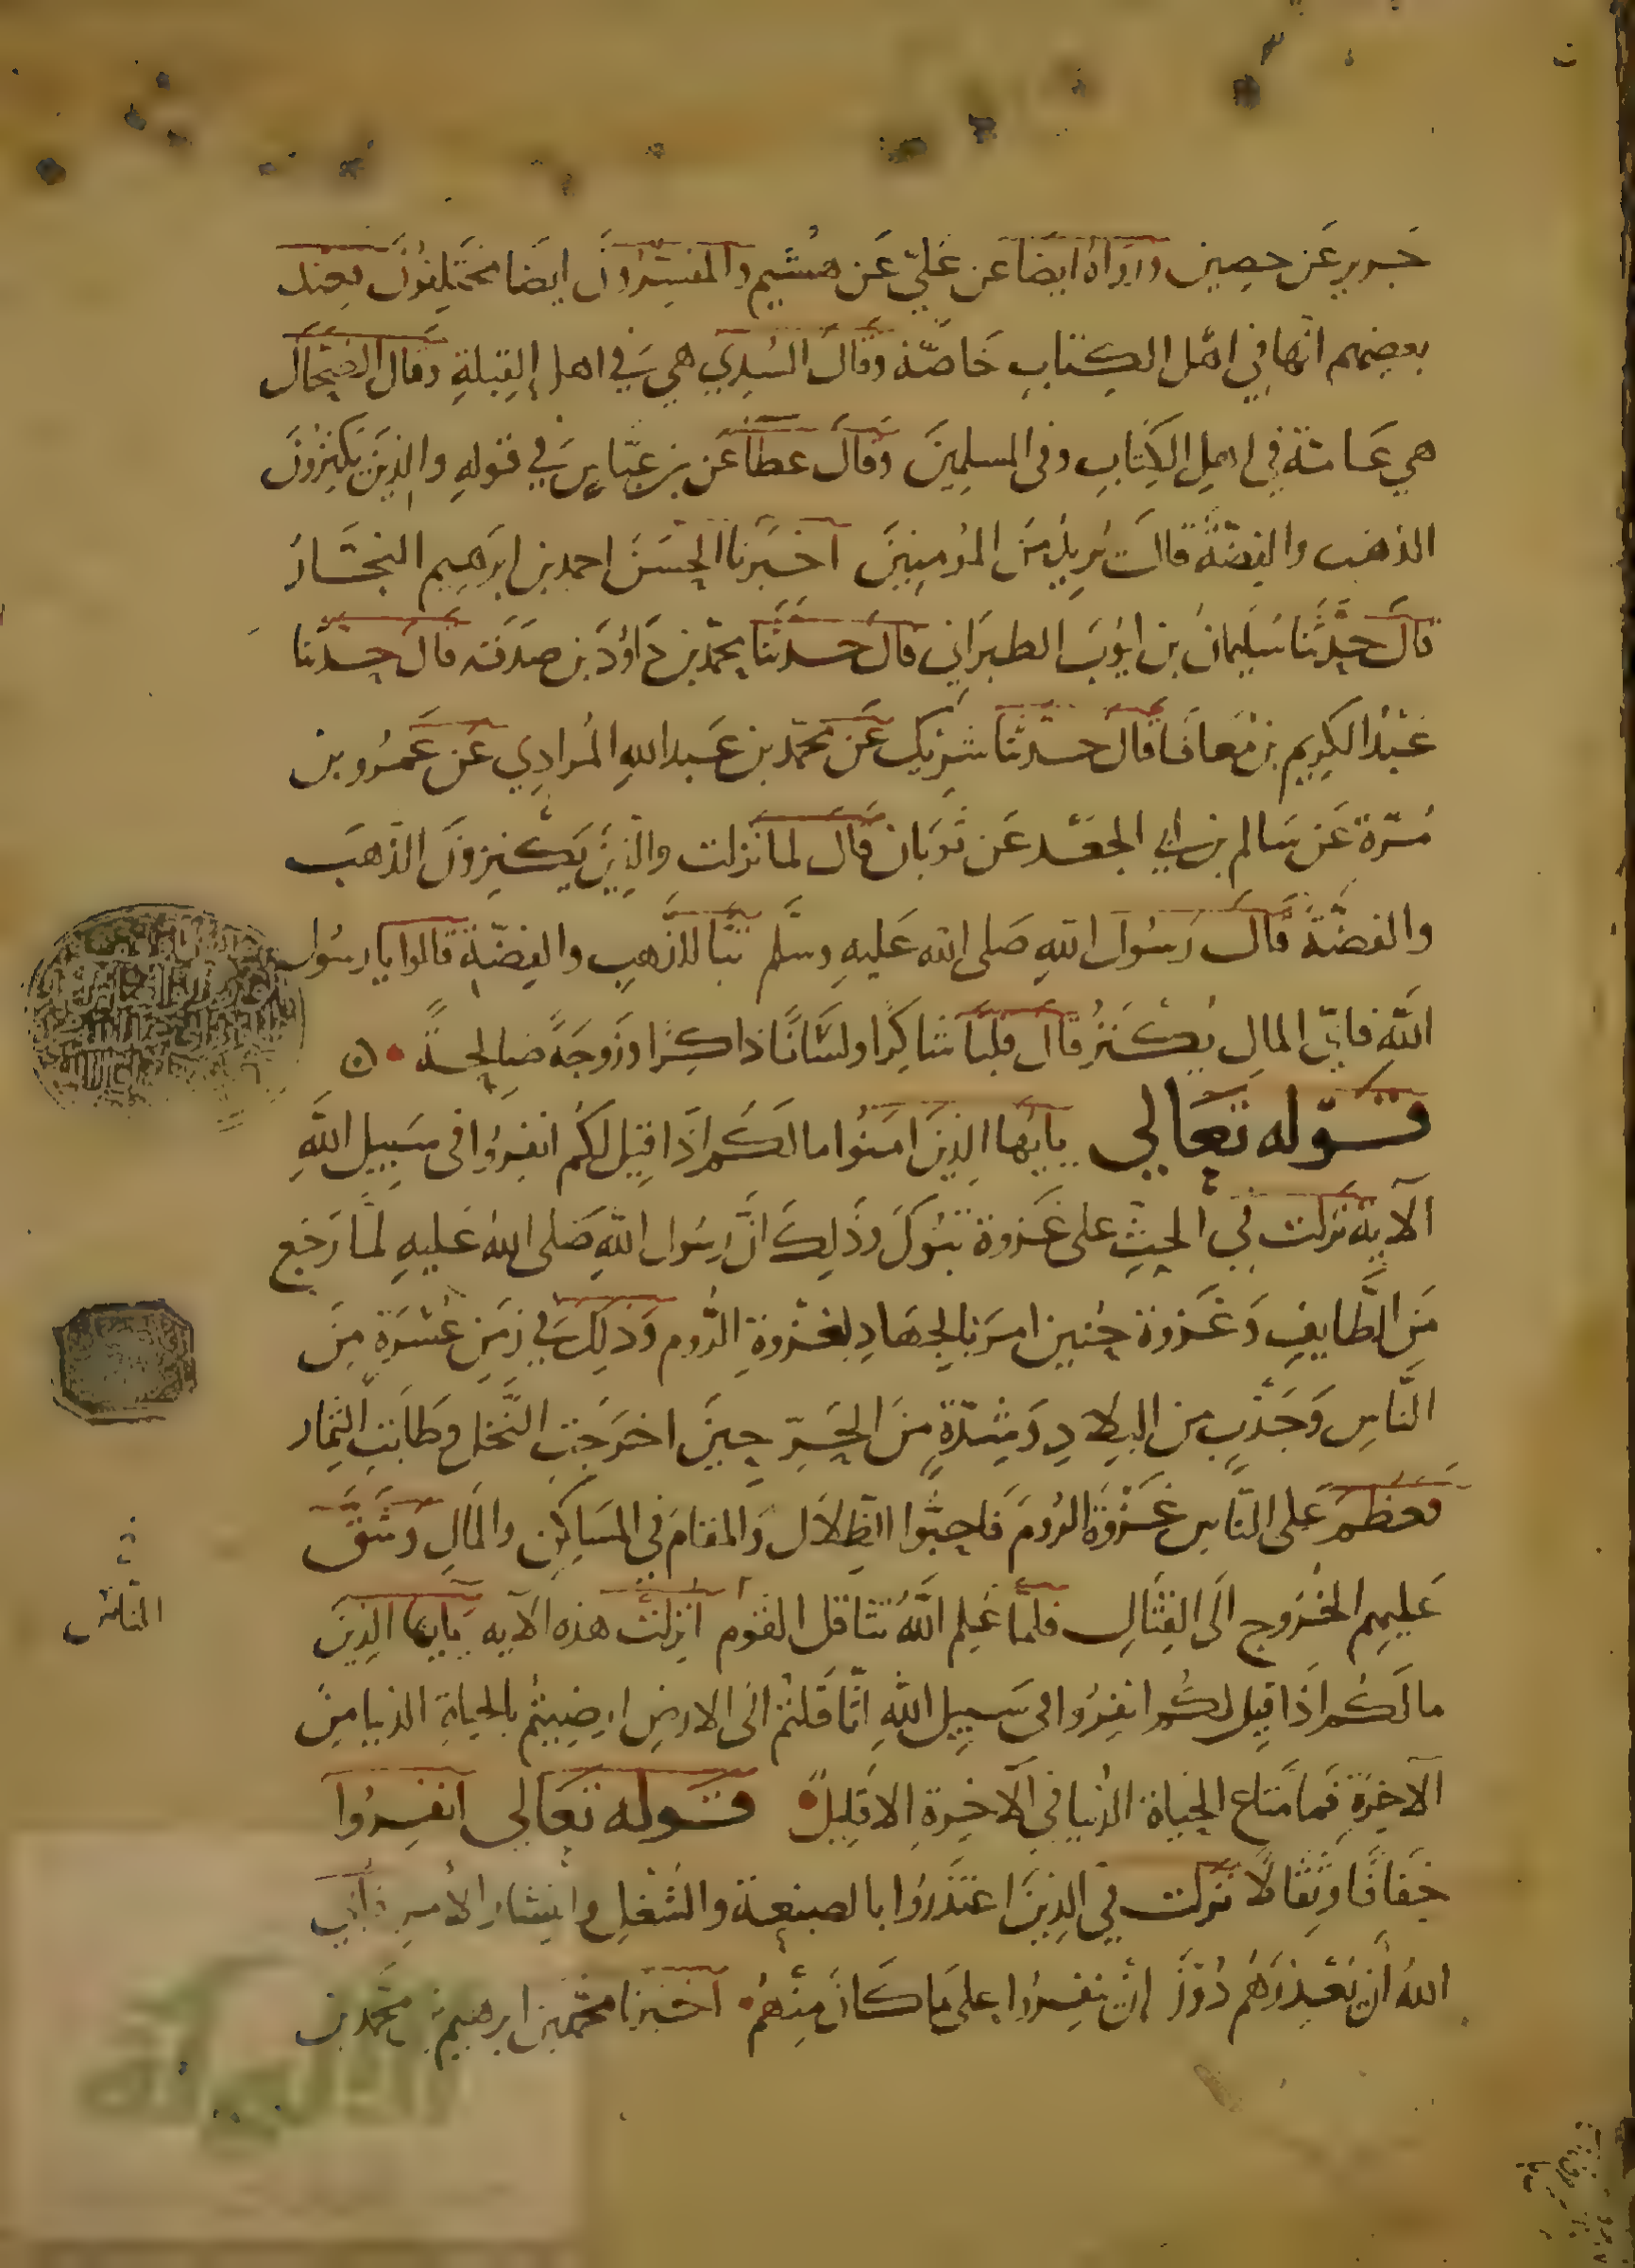 جرير عن حصين ورواه ايضا عن علي عن هشيم والمفسرون ايضا مختلفون فعند
بعضهم انها في اهل الكتاب خاصة وقال السدي هي في اهل القبلة وقال الضحاك
هي عامة في اهل الكتاب وفي المسلمين وقال عطا عن بن عباس في قوله والذين يكنزون
الذهب والفضة قال يريد من المؤمنين اخبرنا الحسن احمد بن ابرهيم النجار
قال حدثنا سليمان بن ايوب الطبراني قال حدثنا محمد بن داود بن صدقة قال حدثنا
عبد الكريم بن معافا قال حدثنا شريك عن محمد بن عبد الله المرادي عن عمرو بن
مرة عن سالم بن ابي الجعد عن ثوبان قال لما نزلت والذين يكنزون الذهب
والفضة قال رسول الله صلى الله عليه وسلم تبا للذهب والفضة قالوا يا رسول
الله فاي المال يكنز قال قلبا شاكرا ولسانا ذاكرا وزوجة صالحة
قوله تعالى يايها الذين امنوا ما لكم اذا قيل لكم انفروا في سبيل الله
الآية نزلت في الحث على غزوة تبوك وذلك ان رسول الله صلى الله عليه لما رجع
من الطايف وغزوة حنين امر بالجهاد لغزوة الروم وذلك في زمن عسرة من
الناس وجدب من البلاد وشدة من الحر حين اخرجت النخل وطابت الثمار
فعظم على الناس غزوة الروم فاحبوا الظلال والمقام في المساكن والمال وشق
عليهم الخروج الى القتال فلما علم الله تثاقل القوم انزلت هذه الآيه يايها الذين
ما لكم اذا قيل لكم انفروا في سبيل الله اثاقلتم الى الارض ارضيتم بالحياة الدنيا من
الآخرة فما متاع الحياة الدنيا في الآخرة الا قليل قوله تعالى انفروا
خفافا وثقالا نزلت في الذين اعتذروا بالضيعة والشغل وانتشار الأمر فأبى
الله أن يعذرهم دون ان ينفروا على ما كان منهم اخبرنا محمد بن ابرهيم بن محمد بن